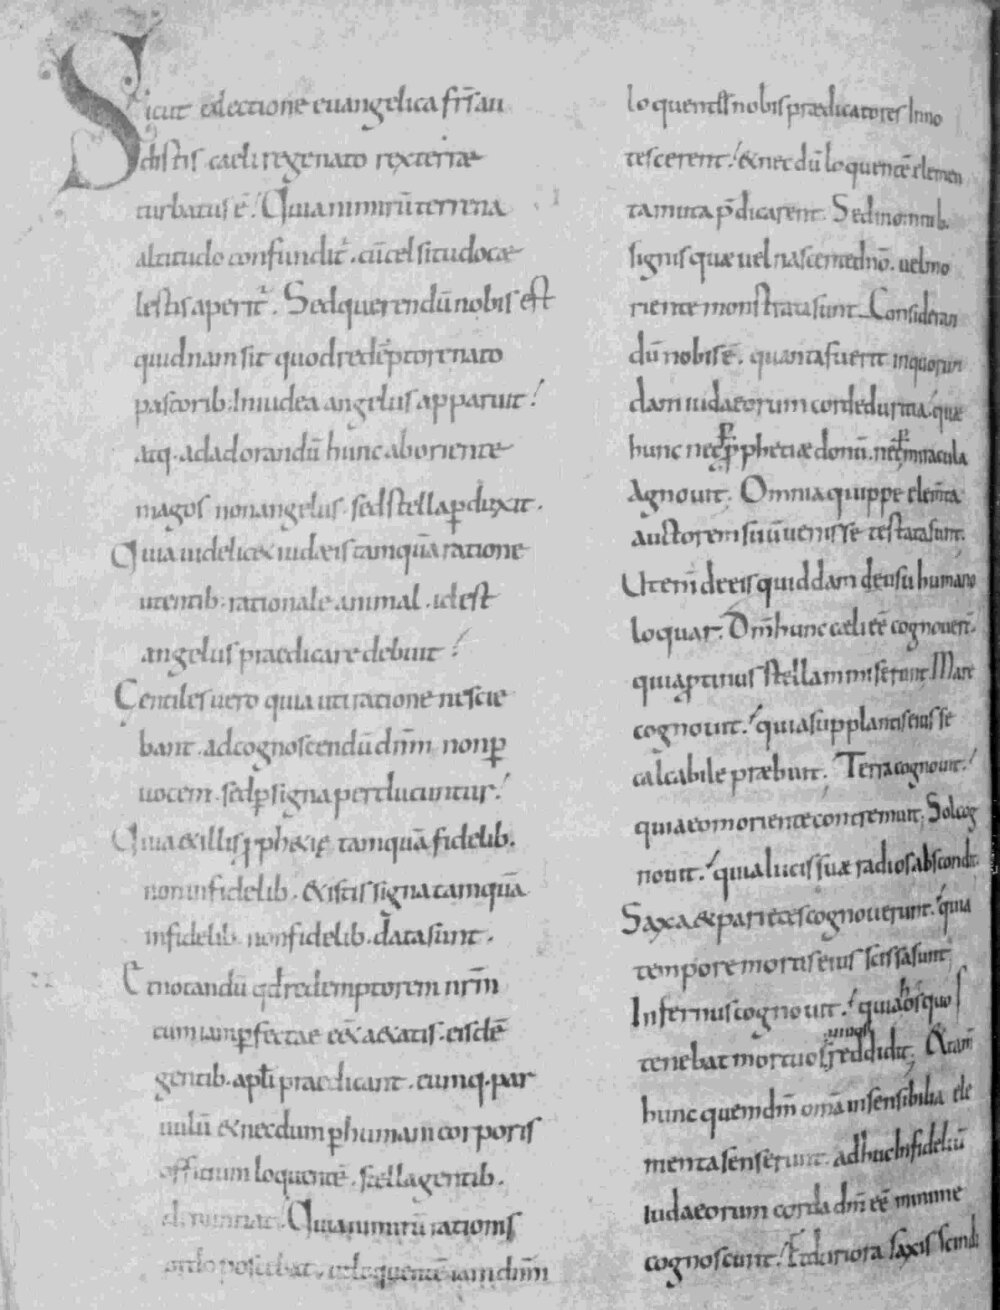 Sicut exlectione euangelica fr̄s au
distis caeli rege nato rex terrae
turbatus ē. Quia nimirū terrena
altitudo confundit̄. cū celsitudo cae
lestis aperit̄. Sed querendū nobis est
quidnam sit quod redēptore nato
pastorib. In iudea angelus apparuit!
atq. ad adorandū hunc ab oriente
magos non angelus. sed stella ꝑduxit.
Quia uidelicet iudaeis tamquā ratione
utentib. rationale animal. id est
angelus praedicare debuit!
Gentiles uero quia uti ratione nescie
bant. ad cognoscendū dn̄m non ꝑ
uocem. sed ꝑ signa perducuntur!
Quia & illis ꝓph&ię tamquā fidelib.
non infidelib. & istis signa tamquā
infidelib. non fidelib. data sunt.
Et notandū qd redemptorem nr̄m
cum iam ꝑfectae eēt aetatis. eisdē
gentib. apl̄i praedicant. eumq. par
uulū & necdum ꝑ humani corporis
officium loquentē. stella gentib.
denuntiat. Quia nimirū rationis
ordo poscebat. ut loquentē iam dn̄m
loquentes nobis prædicatores Inno
tescerent! & necdū loquentē elemen
ta muta p̄dicarent. Sed in omnib.
signis quæ uel nascente dn̄o. uel mo
riente monstrata sunt. Consideran
dū nobis ē. quanta fuerit in quorun
dam iudaeorum corde duritia! quæ
hunc nec ꝑ ꝓphetiæ donū. nec ꝑ miracula
Agnouit. Omnia quippe elem̄ta
auctorem suū uenisse testata sunt.
Ut enī de eis quiddam de usu humano
loquar. Dm̄ hunc cæli eē cognouer̄.
quia ꝓtinus stellam miserunt. Mare
cognouit! quia sup plantis eius se
calcabile præbuit. Terra cognouit!
quia eo moriente contremuit. Sol cog
nouit! quia lucis suæ radios abscondit.
Saxa & parietes cognouerunt! quia
tempore mortis eius scissa sunt.
Infernus cognouit! quia hos quos
tenebat mortuos reddidit. Et tam̄
hunc quem dn̄m om̄a insensibilia ele
menta senserunt. adhuc infideliū
iudaeorum corda dm̄ eē minime
cognoscunt! Et duriora saxis scindi